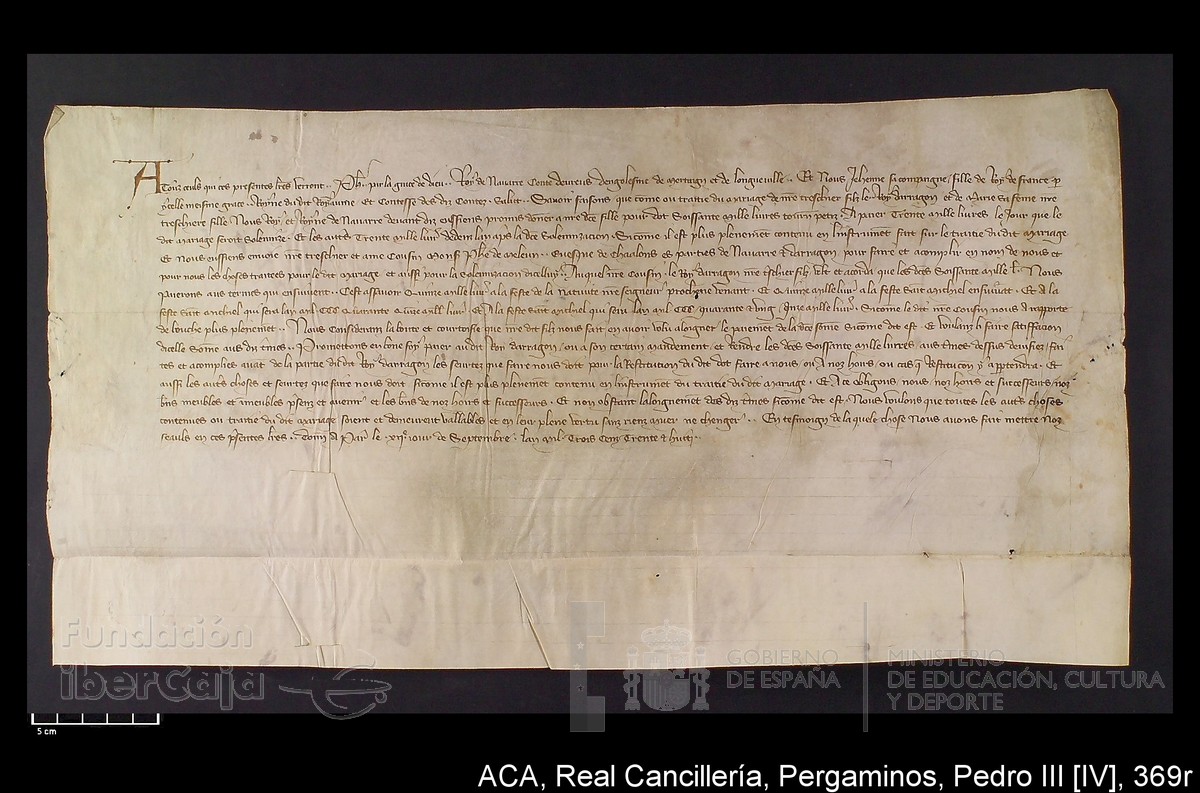 A Touz ceuls qui ces presentes lres verront .. Ph. par la grace de dieu .. Roy de Navarre Conte devreus dengolesme de mortaign et de longueville .. Et Nous Jehenne sa compaigne fille de Roy de france p
ycelle mesme grace Royne du dit Royaume et Contesse des diz Contez Salut .. Savoir faisons que come ou traitie du mariage de nre treschier filz le Roy darragon et de Marie sa feme nre
treschiere fille Nous Roy et Royne de Navarre devant diz eussiens promis doner a nre dce fille pour dot Soissante mille livres tourn petiz A paier Trente mille livres le Jour que le
dit mariage seroit solennize . Et les auts Trente mille livr dedenz lan aps la dce solennizacion . Sicome il est plus plenement contenu en linstrument fait sur le traitie du dit mariage
Et Nous eussiens envoie nre treschier et ame Cousin Mons Phe de meleun . Evesque de Chaalons es parties de Navarre & darragon pour faire et acomplir en nom de nous et
pour nous les choses traitees pour le dit mariage et aussi pour la solennizacion dicelluy .. Auquel nre Cousin le Roy darragon nre treschier filz volt et acorda que les dces Soissante mille l. Nous
paierons aus termes qui ensuivent . Cest assavoir Quinze mille livr a la feste de la Nativite nre seigneur prochaine venant . Et Quinze mille livr a la feste saint michiel ensuivant . Et a la
feste saint michiel qui sera lan mil CCC Quarante Quinze mill livr . Et A la feste saint michiel qui sera lan mil CCC quarante & un Quinze mille livr . Sicome le dit nre Cousin nous a rapporte
de bouche plus plenement .. Nous Considerans la bonte et courtoisie que nre dit filz nous fait en avoir volu aloigner le paiement de la dce some sicome dit est . Et voulanz li faire satisfacion
dicelle some aus diz tmes .. Promettons en bone foy paier au dit Roy darragon . ou a son certain mandement . et rendre les dces Soissante mille livres aus tmes dessus devisez / fai
tes et acomplies avant de la partie du dit Roy darragon les seurtez que faire nous doit pour la Restitution du dit dot faire a nous ou A noz hoirs . ou cas q Restitucion y appendra . Et
aussi les auts choses et seurtez que faire nous doit sicome il est plus plenement contenu en linstrument du traitie du dit mariage . Et A ce obligons nous noz hoirs et successeurs / noz
bns meubles et imeubles psenz et avenir et les bns de noz hoirs et successeurs . Et non obstant laloignement des diz tmes sicome dit est . Nous voulons que toutes les auts choses
contenues ou traitie du dit mariage soient et demeurent vallables et en leur plene vertu sanz riens muer ne changer .. En tesmoign de la quele chose Nous avons fait mettre noz
seauls en ces psentes lres .. Donn A Paris le jour de Septembre . lan mil Trois Cenz Trente & huit ..
Fundación
iberCaja
GOBIERNO
DE ESPAÑA
MINISTERIO
DE EDUCACIÓN, CULTURA
Y DEPORTE
5 cm
ACA, Real Cancillería, Pergaminos, Pedro III [IV], 369r